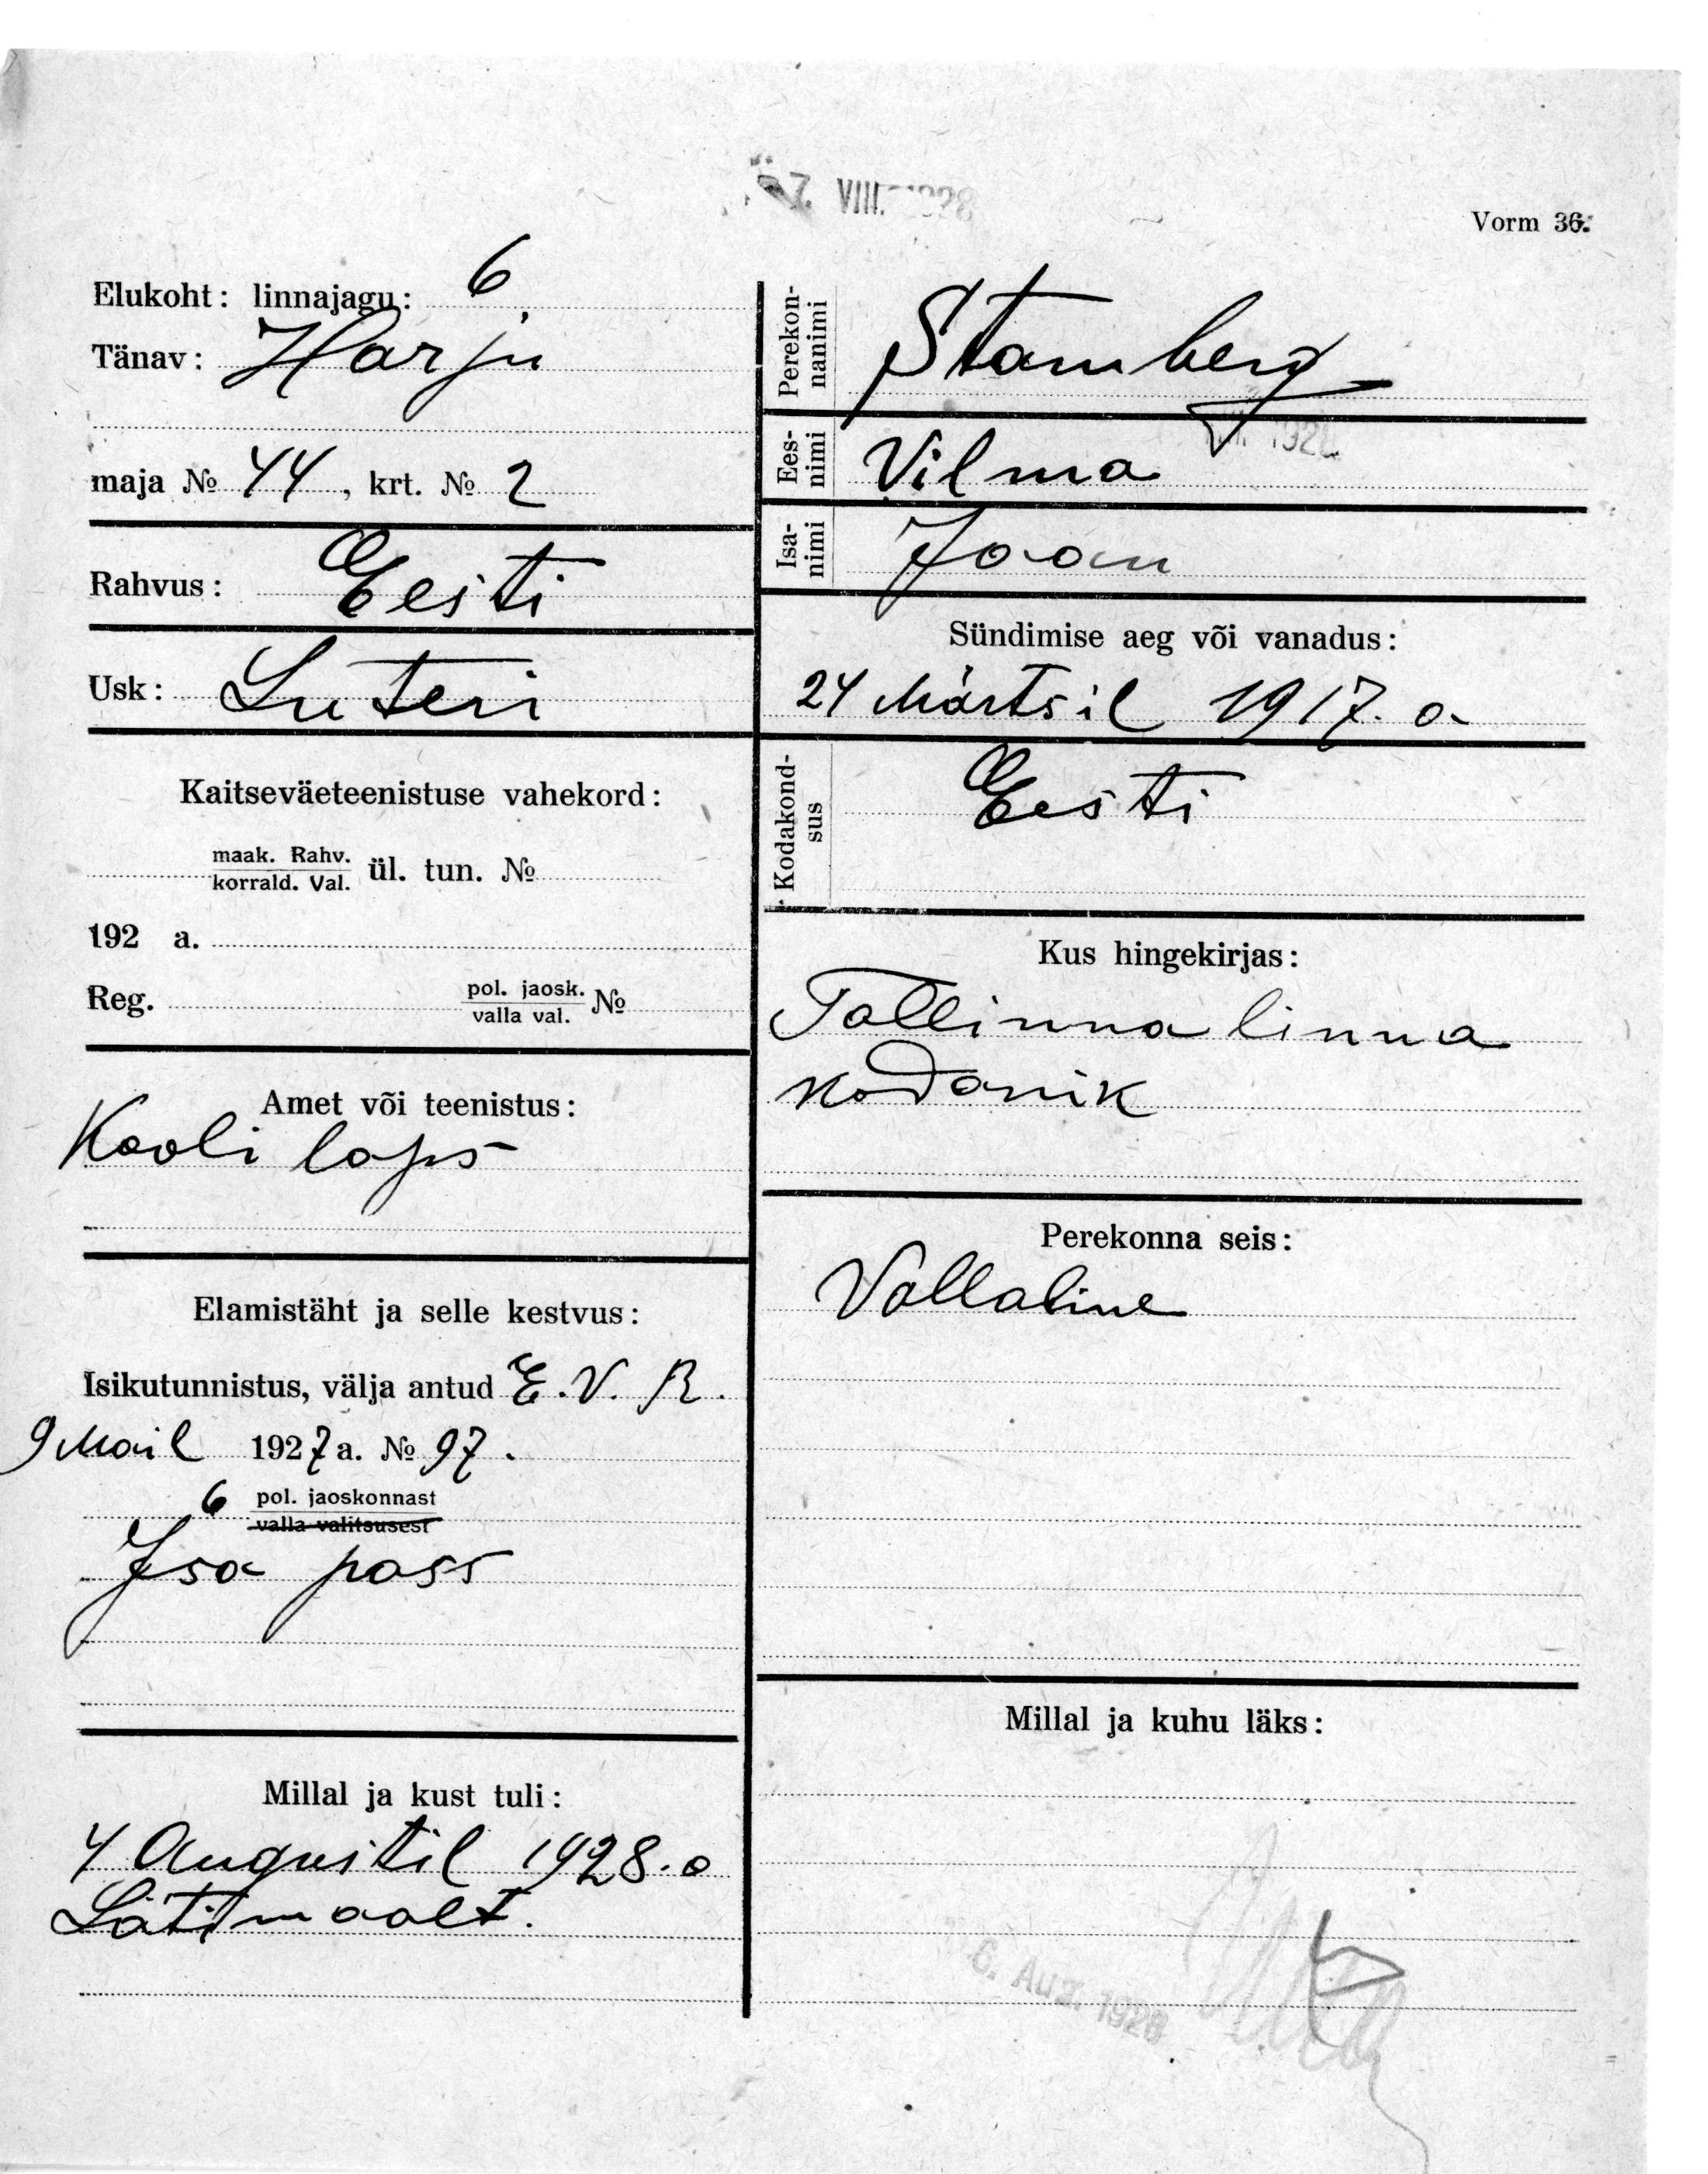 VIII. 1928
Vorm 36.
Elukoht: linnajagu: 6
Tänav: Harju
maja № 44, krt. № 2
Rahvus: Eesti
Usk: Luteri
Kaitseväeteenistuse vahekord:
maak. Rahv.
korrald. Val. ül. tun. №
192 a.
Reg. pol. jaosk.
valla val. №
Amet või teenistus:
Kooli laps
Elamistäht ja selle kestvus:
Isikutunnistus, välja antud E. V. R.
9 Mail 1927 a. № 97.
6 pol. jaoskonnast
valla valitsusest
Isa pass
Millal ja kust tuli:
4 Augustil 1928. a
Lätimaalt.
Perekon-
nanimi Stamberg
1928
Ees-
nimi Vilma
Isa-
nimi Joan
Sündimise aeg või vanadus:
24 Märtsil 1917. a
Kodakond-
sus Eesti
Kus hingekirjas:
Tallinna linna
kodanik
Perekonna seis:
Vallaline
Millal ja kuhu läks:
6. Aug. 1928